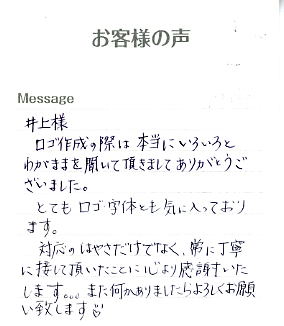 お客様の声
Message
井上様
ロゴ作成の際は本当にいろいろと
わがままを聞いて頂きましてありがとうご
ざいました。
とてもロゴ・字体とも気に入っており
ます。
対応のはやさだけでなく、常に丁寧
に接して頂いたことに心より感謝いた
します。。。また何かありましたらよろしくお願
い致します